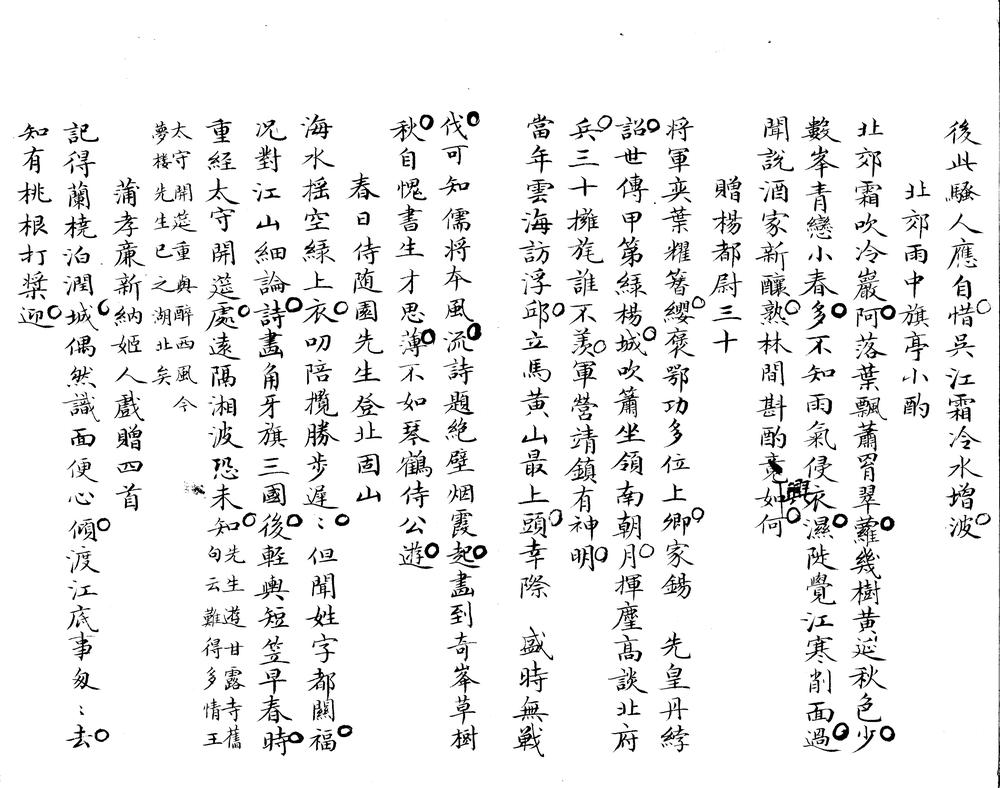 後此騷人應自惜吳江霜冷水增波
北郊雨中旗亭小酌
北郊霜吹冷巖阿落葉飄蕭罥翠蘿幾樹黃遮秋色少
數峯青戀小春多不知雨氣侵衣濕陡覺江寒削面過
聞說酒家新釀熟林間斟酌興如何
贈楊都尉三十
將軍奕葉耀簪纓褒鄂功多位上卿家錫　先皇丹綍
詔世傳甲第綠楊城吹簫坐領南朝月揮麈高談北府
兵三十擁旄誰不羨軍營靖鎮有神明
當年雲海訪浮邱立馬黃山最上頭幸際　盛時無戰
伐可知儒將本風流詩題絶壁烟霞起畵到奇峯草樹
秋自愧書生才思薄不如琴鶴侍公遊
春日侍随園先生登北固山
海水摇空緑上衣叨陪攬勝步遲〻但聞姓字都關福
况對江山細論詩畵角牙旗三國後輕輿短笠早春時
重經太守開筵處遠隔湘波恐未知
先生遊甘露寺舊
句云難得多情王
太守開筵重與醉西風今
夢樓先生已之湖北矣
蒲孝廉新納姬人戲贈四首
記得蘭橈泊潤城偶然識面便心傾渡江底事匆〻去
知有桃根打槳迎